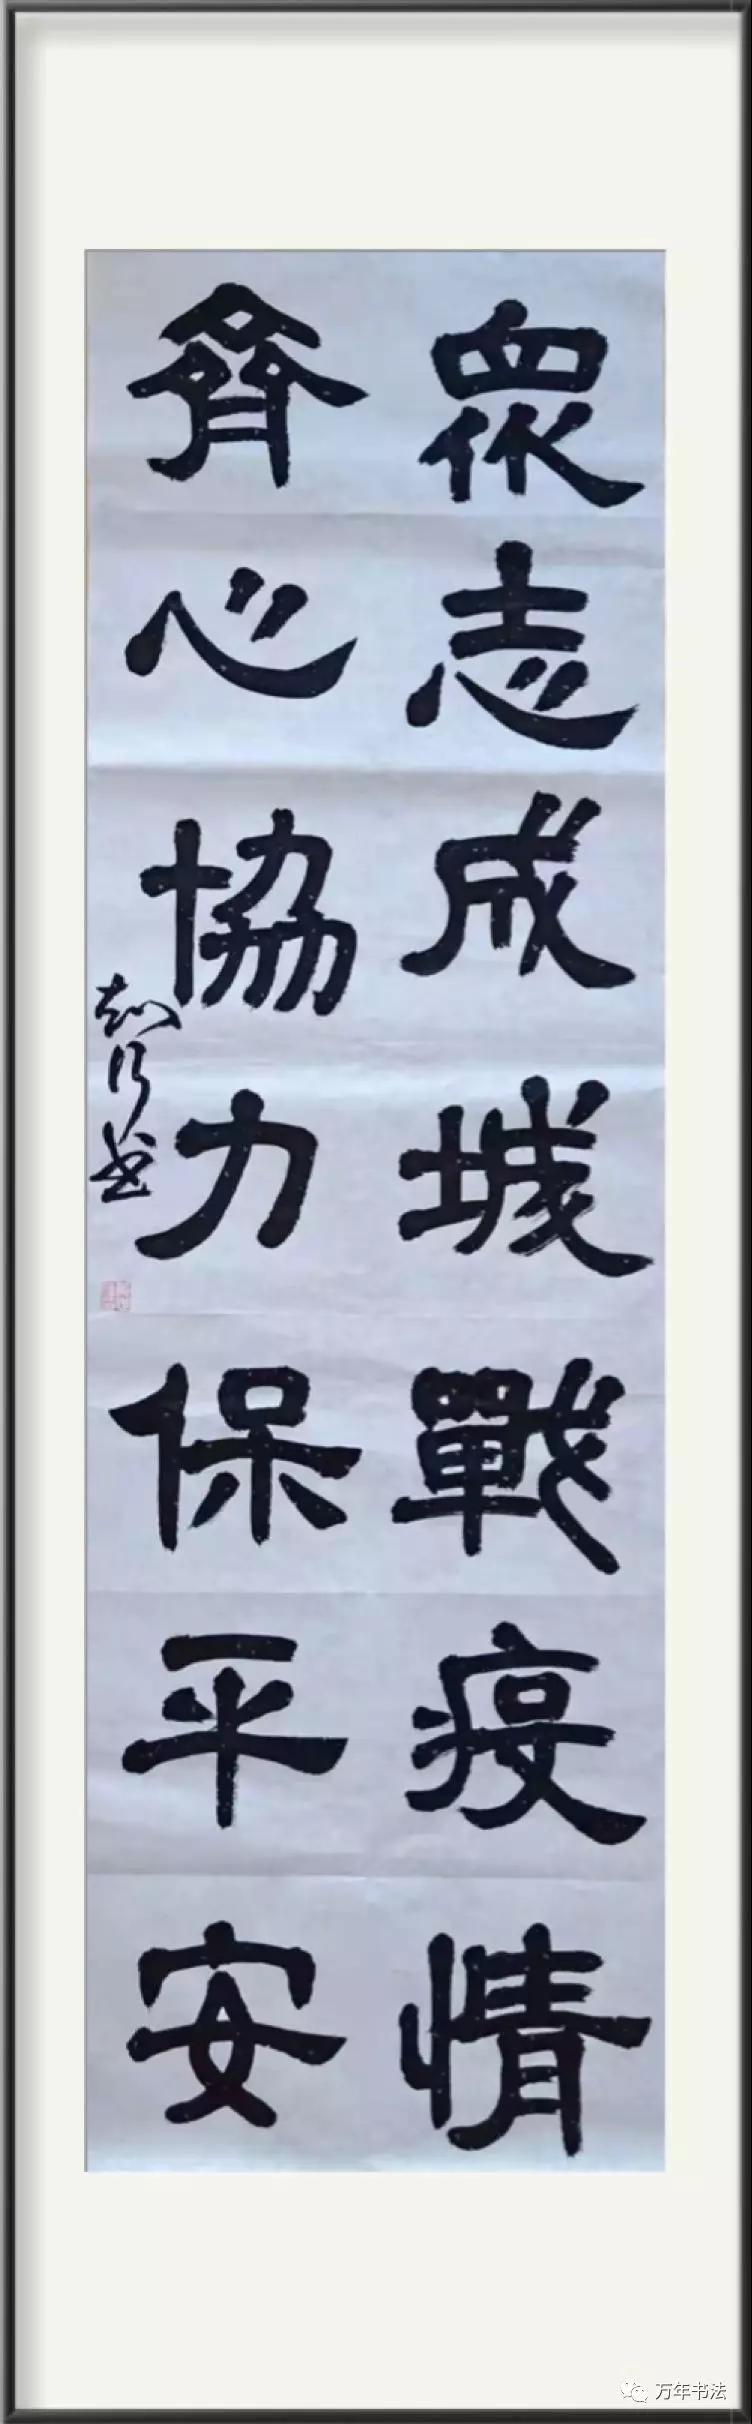 眾志成城戰疫情
齊心協力保平安
知行书
万年书法